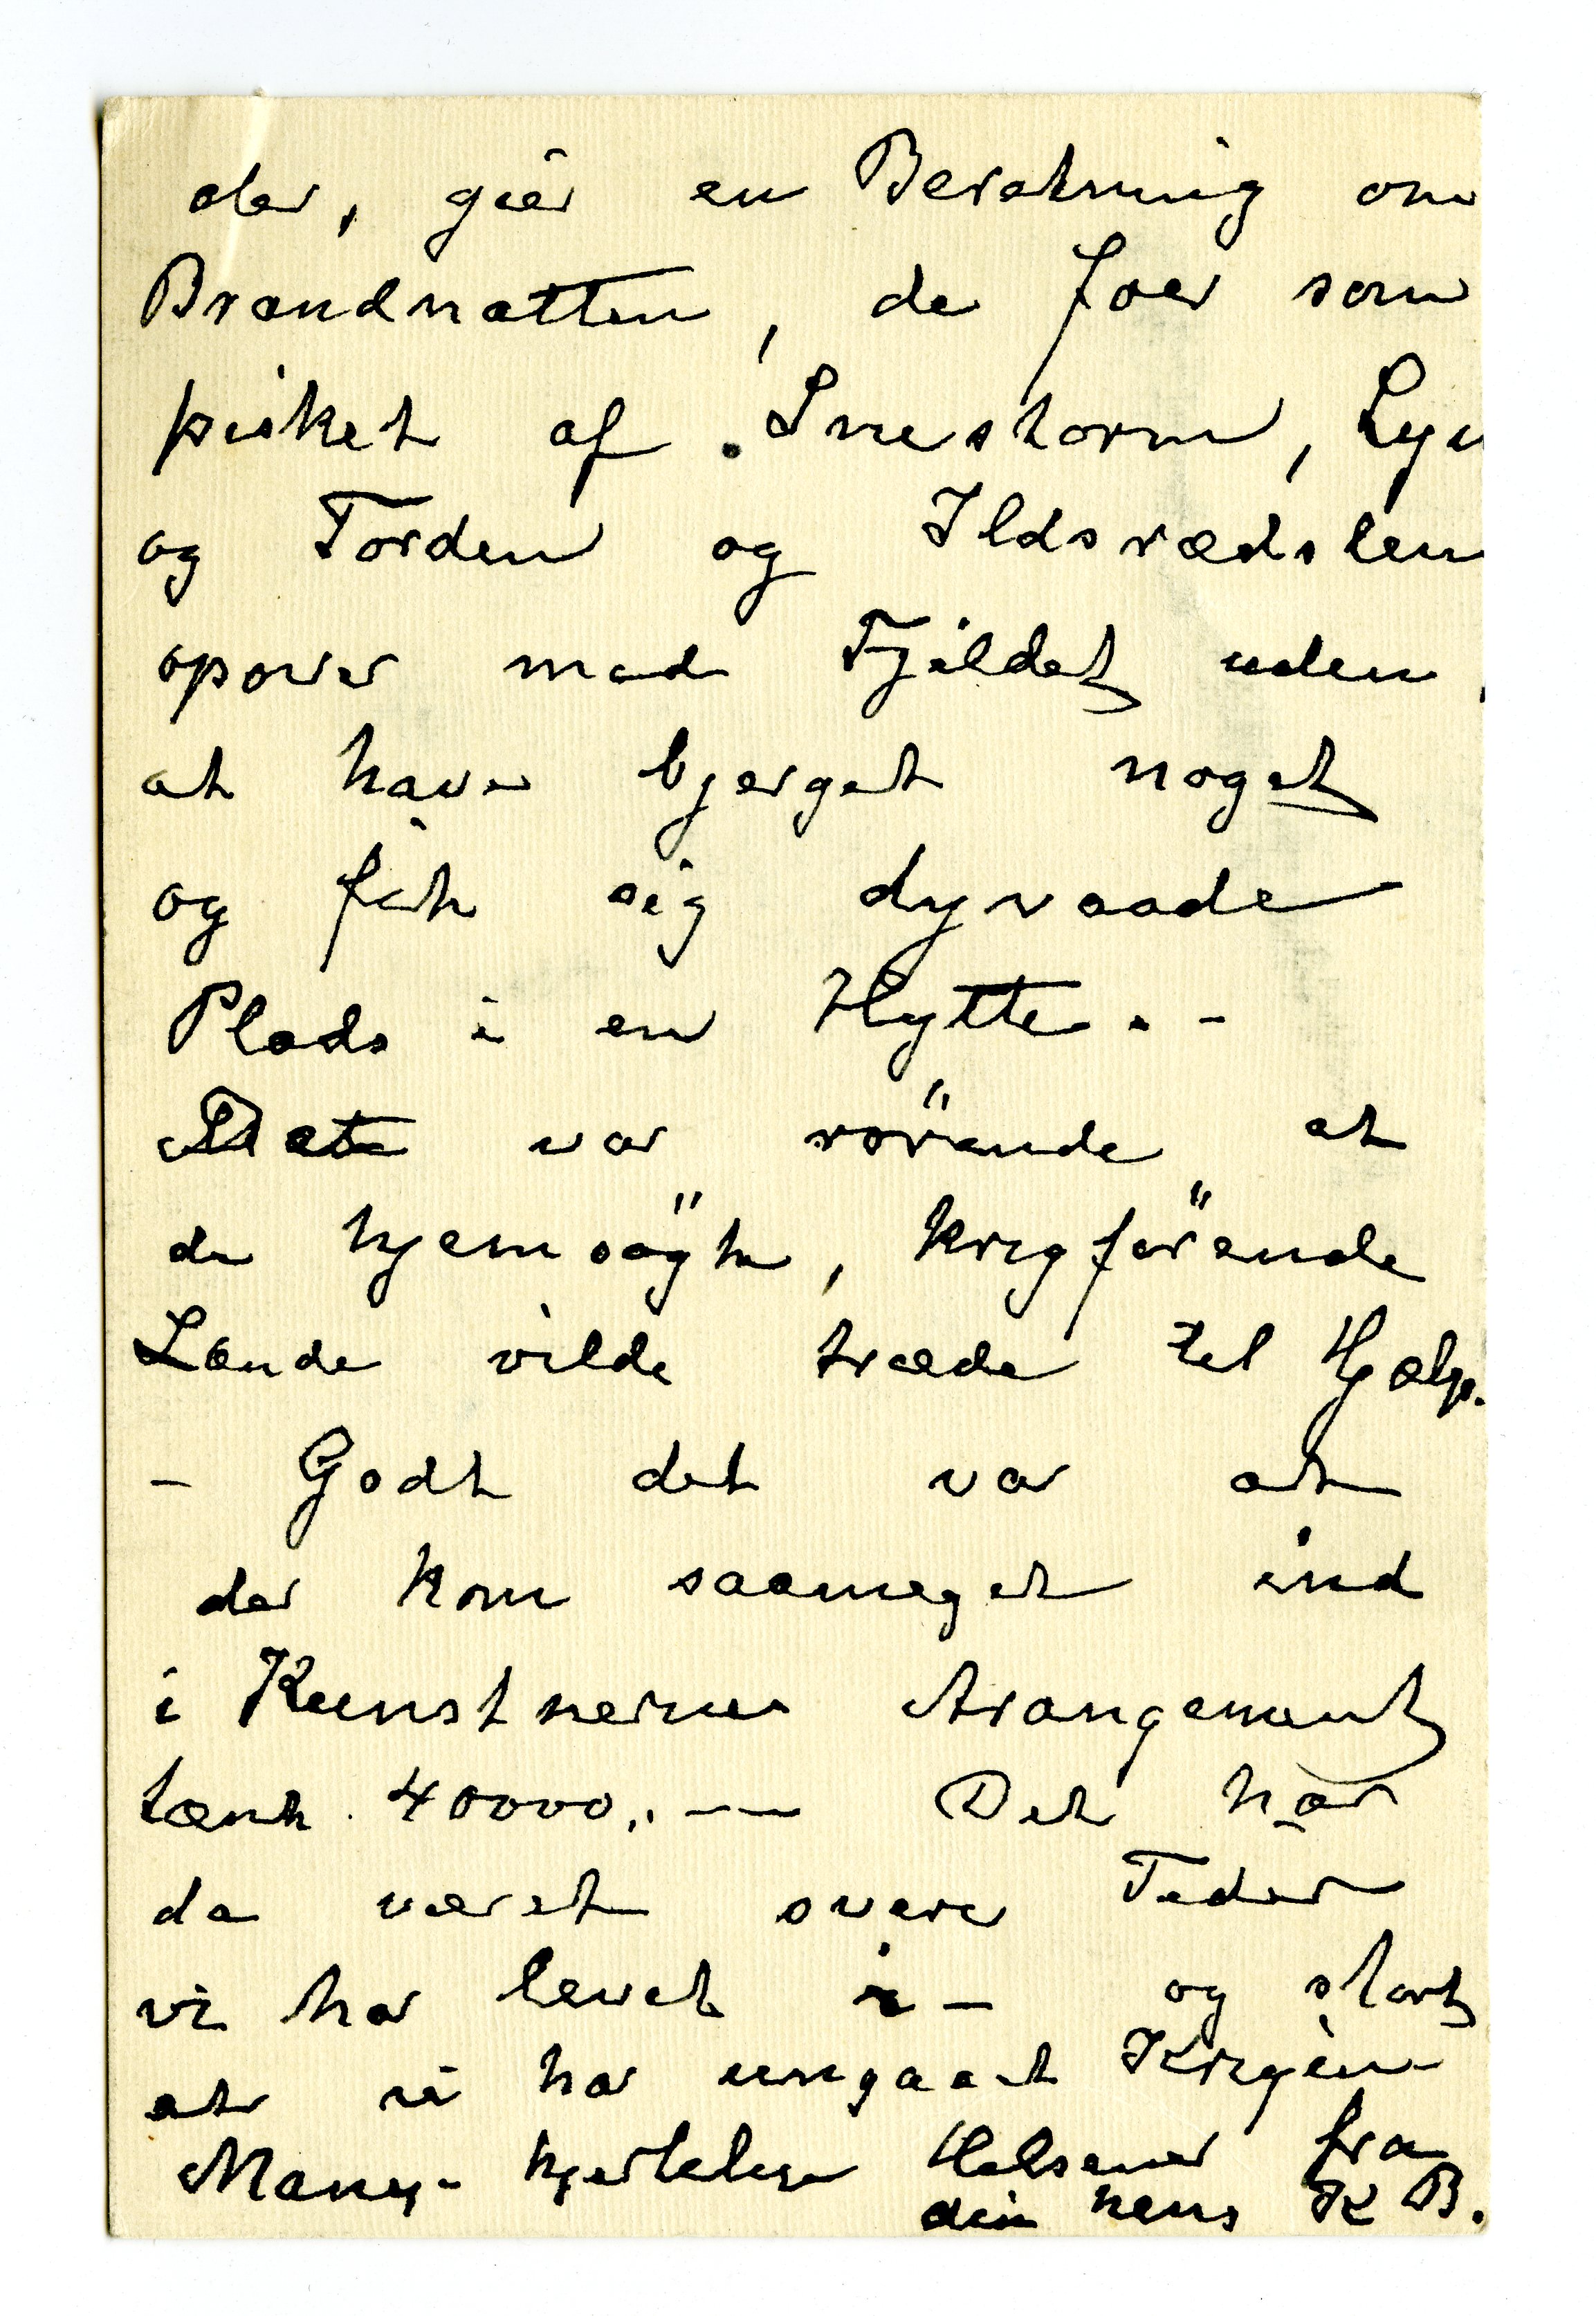 der, gir en Beretning om
Brandnatten, de foer som
pisket af Snestorm, Lyn
og Torden og Ildsrædslen
opover mod Fjeldet uden
at have bjerget noget
og fik sig dyvaade
Plads i en Hytte. -
Det var rörende at
de hjemsögte, krigförende
Lande vilde træde til Hjælp.
- Godt det var at
der kom saameget ind
i Kunstnernes Arangement
tænk 40000,. — Det har
da været svere Tider
vi har levet i - og stort
at vi har ungaaet Krigen -
Mange hjertelige Helsener fra
din hens K B.